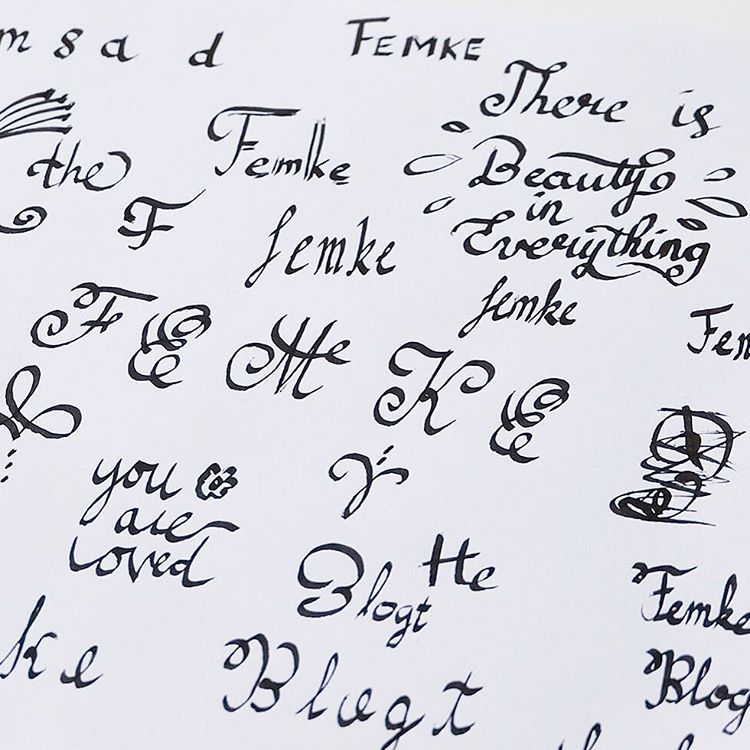 m s a d
FEMKE
There is
Beauty
in
Everything
the
Femke
F
femke
femke
Fem
FEMKE
you
are
loved
Blogt
He
Femke
ke
Blogt
Blog